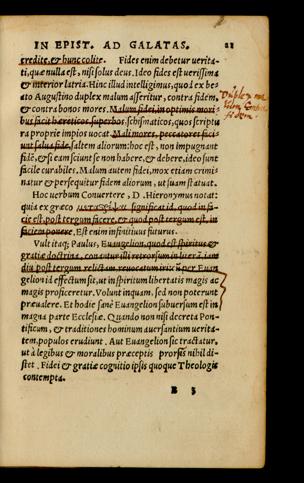 IN EPIST. AD GALATAS. 21
credite, & hunc colite. Fides enim debetur verita-
ti, quæ nulla est, nisi solus deus. Ideo fides est verissima
& interior latria. Hinc illud intelligimus, quod ex be-
ato Augustino duplex malum asseritur, contra fidem,
& contra bonos mores. Malum fidei, in optimis mori
bus facit hæreticos, superbos, schismaticos, quos scriptu
ra proprie impios vocat. Mali mores, peccatores faci-
unt salua fide, saltem aliorum: hoc est, non impugnant
fidē, & si eam sciunt se non habere, & debere, ideo sunt
facile curabiles. Malum autem fidei, mox etiam crimi
natur & persequitur fidem aliorum, ut suam statuat.
Hoc verbum Conuertere, D. Hieronymus notat:
quia ex græco significat id, quod in fa-
cie est, post tergum facere, & quod post tergum est, in
faciem ponere. Est enim infinitiuus futurus.
Vult itaq; Paulus, Euangelion, quod est spiritus &
gratiæ doctrina, conantur illi retrorsum in literā, iam
diu post tergum relictam, reuocatum iri: ut per Euan
gelion id effectum sit, ut in spiritum libertatis magis ac
magis proficeretur. Volunt inquam, sed non poterunt
præualere. Et hodie sanè Euangelion subuersum est in
magna parte Ecclesiæ. Quando non nisi decreta Pon-
tificum, & traditiones hominum auersantium verita-
tem, populos erudiunt. Aut Euangelion sic tractatur,
ut à legibus & moralibus præceptis prorsus nihil di-
stet. Fidei & gratiæ cognitio ipsis quoque Theologis
contempta.
B 3
Duplex ma
lum contra
fidem.